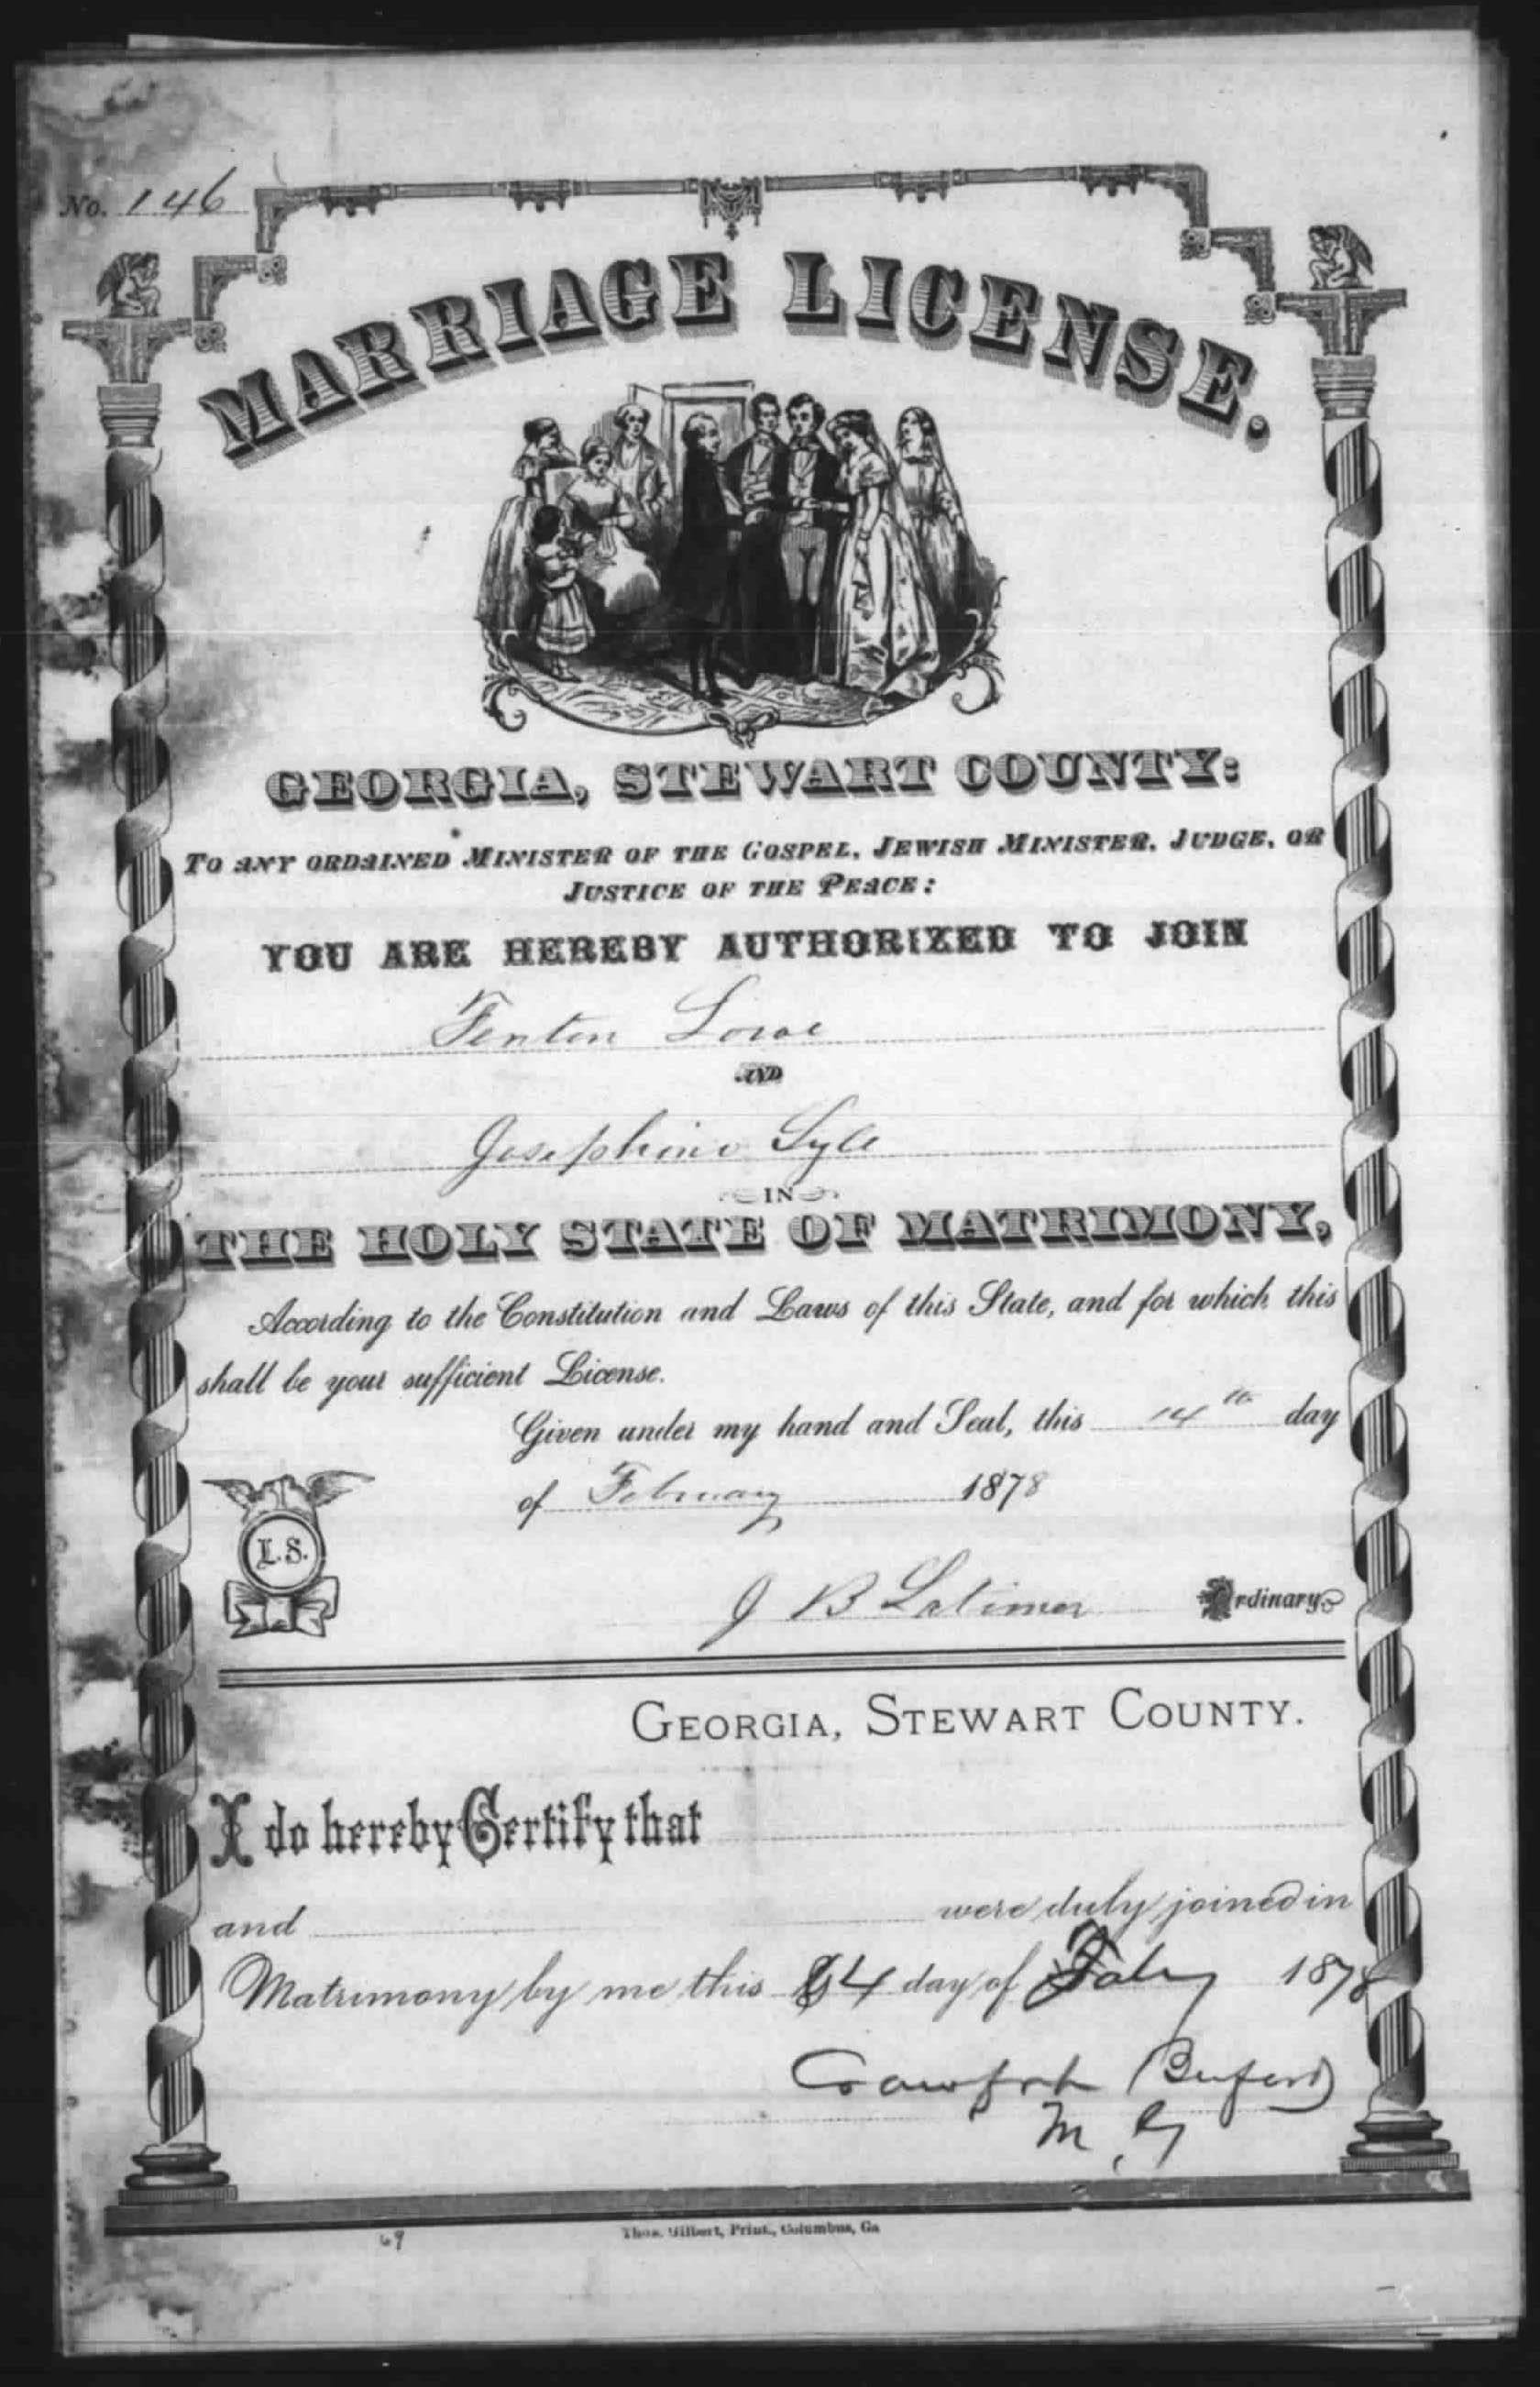 No. 146
MARRIAGE LICENSE.
GEORGIA, STEWART COUNTY:
TO ANY ORDAINED MINISTER OF THE GOSPEL, JEWISH MINISTER, JUDGE, OR
JUSTICE OF THE PEACE:
YOU ARE HEREBY AUTHORIZED TO JOIN
Fenton Lowe
AND
Josephine Lyle
IN
THE HOLY STATE OF MATRIMONY,
According to the Constitution and Laws of this State, and for which this
shall be your sufficient License.
Given under my hand and Seal, this 14th day
of February 1878
L.S.
J B Latimer Ordinary
GEORGIA, STEWART COUNTY.
I do hereby Certify that
and were duly joined in
Matrimony by me this 14 day of Feby 1878
Buford
M. G
69
Thos. Gilbert, Print., Columbus, Ga